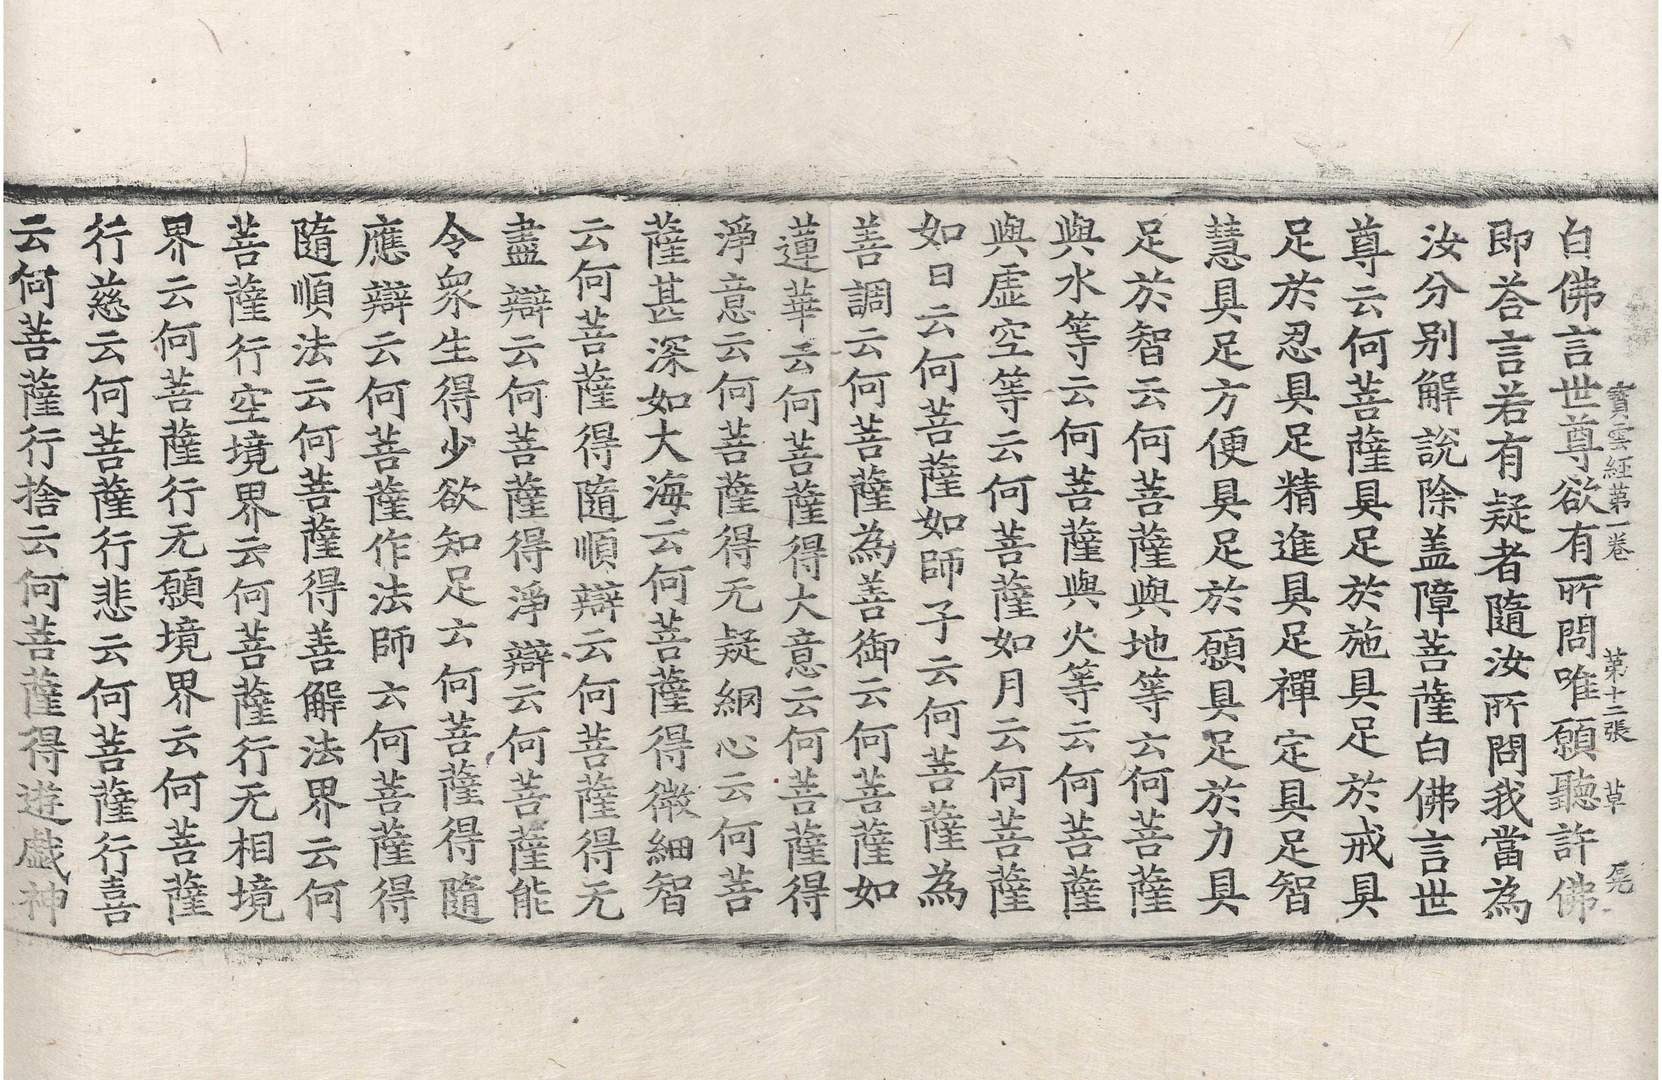 寳雲經第一卷 第十二張 草
白佛言世尊欲有所問唯願聽許佛
即荅言若有疑者隨汝所問我當為
汝分别解説除盖障菩薩白佛言世
尊云何菩薩具足於施具足於戒具
足於忍具足精進具足禪定具足智
慧具足方便具足於願具足於力具
足於智云何菩薩與地等云何菩薩
與水等云何菩薩與火等云何菩薩
與虛空等云何菩薩如月云何菩薩
如日云何菩薩如師子云何菩薩為
善調云何菩薩為善御云何菩薩如
蓮華云何菩薩得大意云何菩薩得
淨意云何菩薩得无疑網心云何菩
薩甚深如大海云何菩薩得微細智
云何菩薩得隨順辯云何菩薩得无
盡辯云何菩薩得淨辯云何菩薩能
令衆生得少欲知足云何菩薩得隨
應辯云何菩薩作法師云何菩薩得
隨順法云何菩薩得善解法界云何
菩薩行空境界云何菩薩行无相境
界云何菩薩行无願境界云何菩薩
行慈云何菩薩行悲云何菩薩行喜
云何菩薩行捨云何菩薩得遊戲神